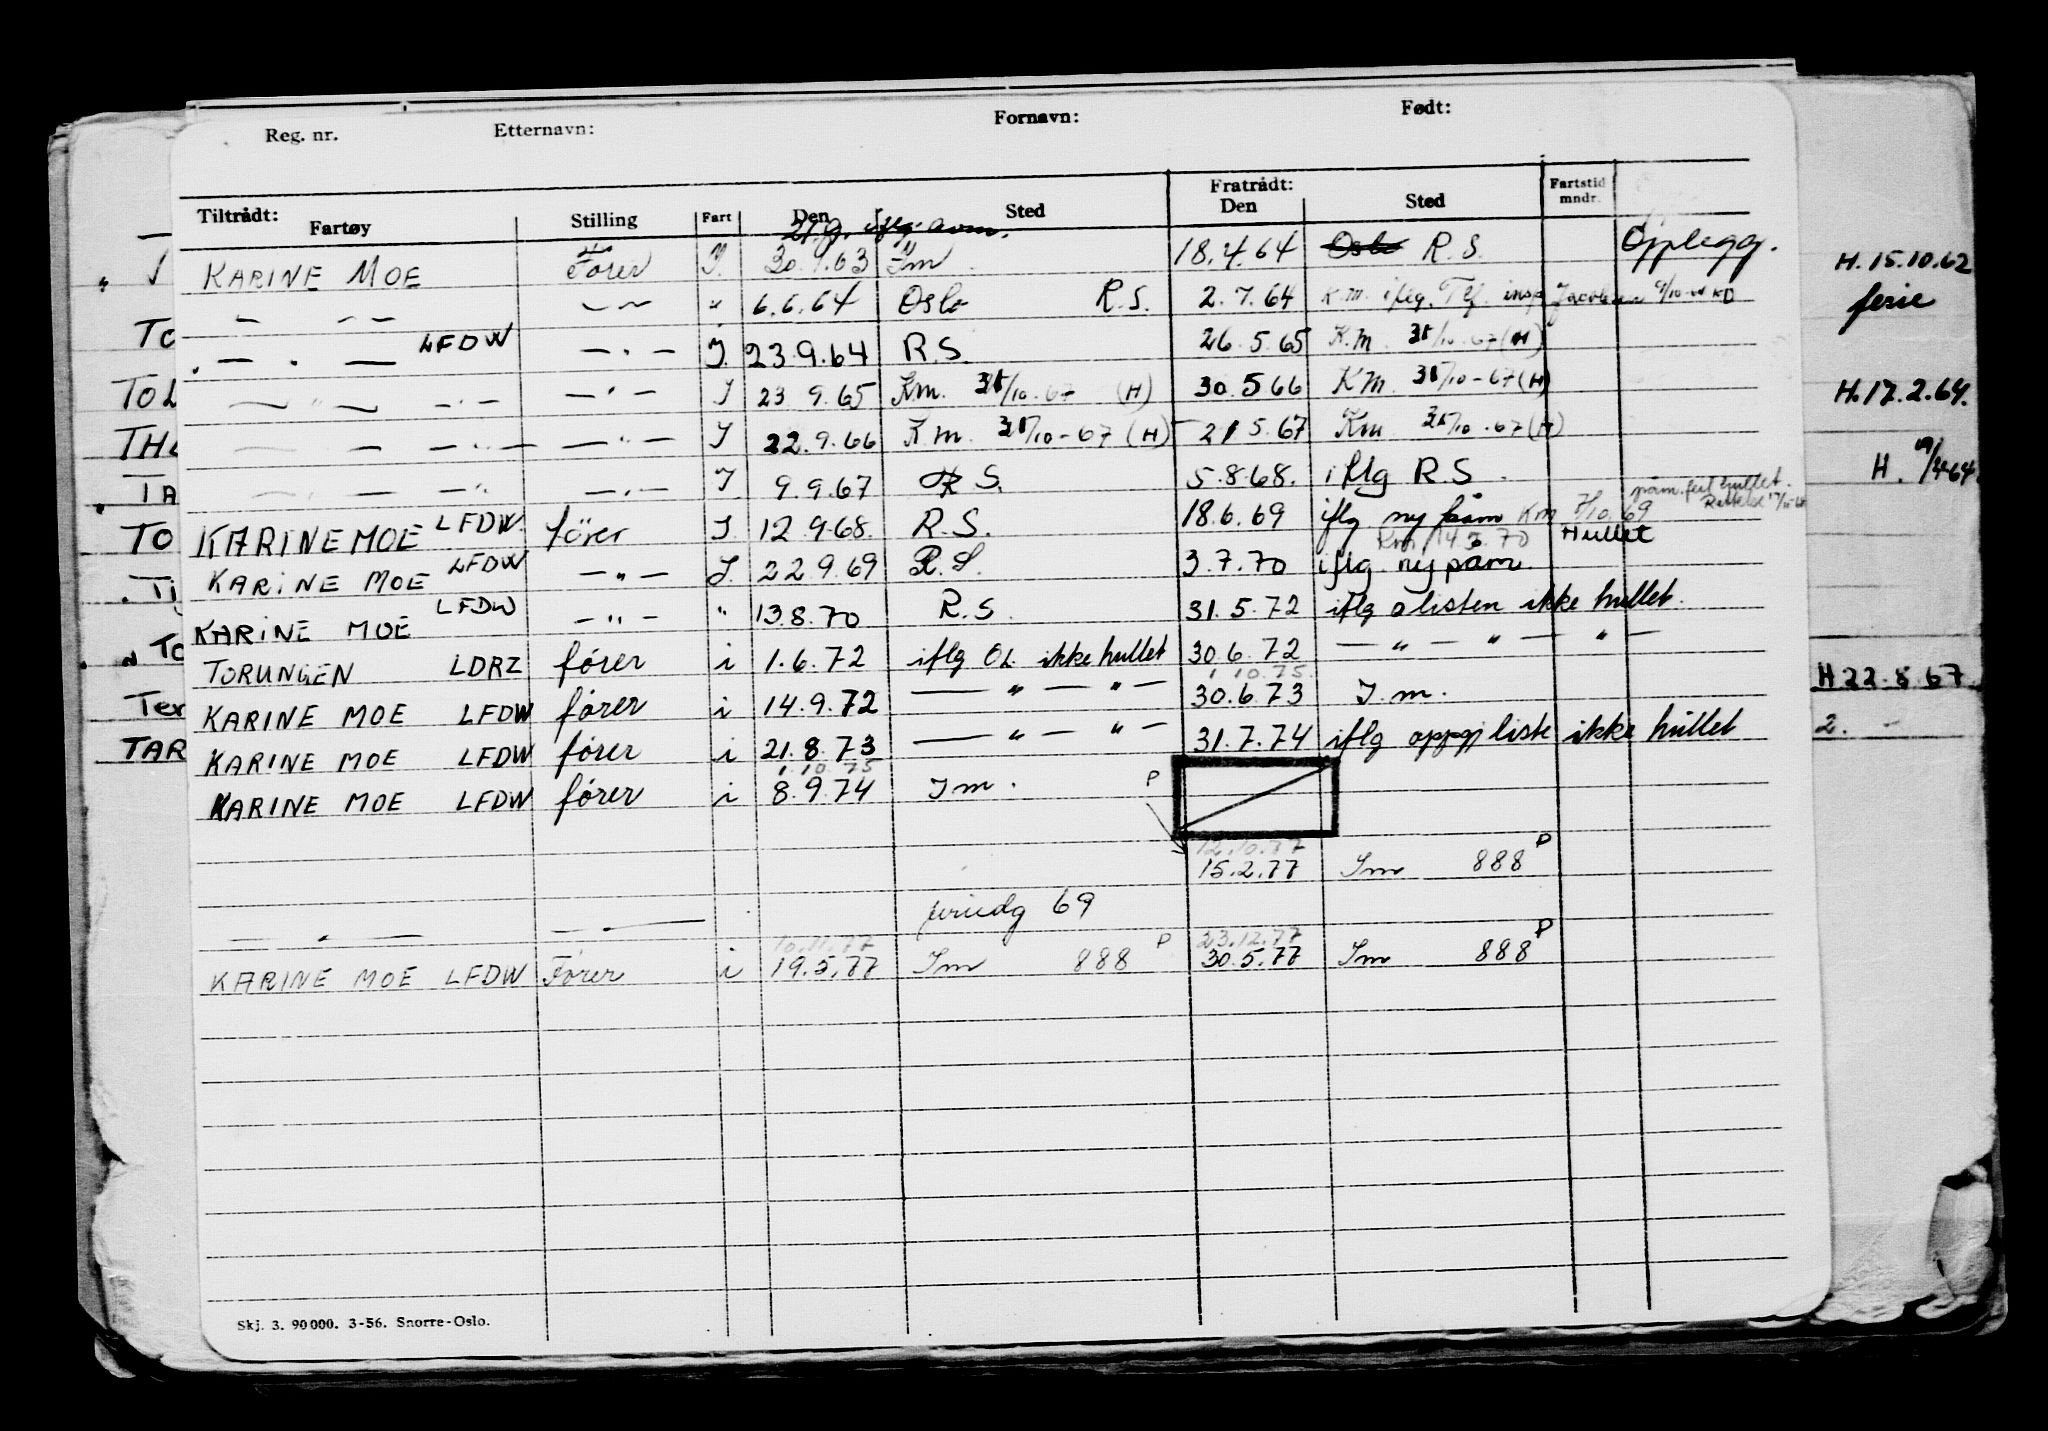 Reg. nr. Etternavn: Fornavn: Født:
Tiltrådt: Fratrådt:
Fartøy Stilling Fart Den Sted Den Sted Fartstid mndr.
iflg. avm.
KARINE MOE Fører I. 30.9.63 Im 18.4.64 Oslo R.S. Opplegg. H. 15.10.62
— " — — " — " 6.6.64 Oslo R.S. 2.7.64 K.m. iflg. Tlf. insp. Jacobsen KD ferie
— " — LFDW — " — I. 23.9.64 R.S. 26.5.65 K.m. 31/10-67 (H)
— " — — " — — " — I 23.9.65 K.m. 31/10-67 (H) 30.5 66 K.m. 31/10-67 (H) H. 17.2.64.
— " — — " — — " — I 22.9.66 K.m. 31/10-67 (H) 21.5.67 Km 31/10-67 (H)
— " — — " — — " — I 9.9.67 R S. 5.8.68. iflg R S. H. /4 64
KARINE MOE LFDW. fører I. 12.9.68. R.S. 18.6.69 iflg ny påm Km 7/10.69 påm. feil hullet.
Km 14.5.70 Hullet
KARINE MOE LFDW — " — I. 22.9.69 R.S. 3.7.70 iflg ny påm.
KARINE MOE LFDW — " — " 13.8.70 R.S. 31.5.72 iflg o listen ikke hullet.
TORUNGEN LDRZ fører i 1.6.72 iflg OL. ikke hullet 30.6.72 — " — " — " —
1.10.75.
KARINE MOE LFDW fører i 14.9.72 — " — " — 30.6.73 I.m. H 22.8.67
KARINE MOE LFDW fører i 21.8.73 — " — " — 31.7.74 iflg oppgj liste ikke hullet 2. -
1.10.75
KARINE MOE LFDW fører i 8.9.74 Im. P
12.10.77
15.2.77 Im 888 P
— " — — " — 69
10.11.77 23.12.77
KARINE MOE LFDW Fører i 19.5.77 Im 888 P 30.5.77 Im 888 P
TO
TOL
TA
TO
TO
Ter
TAR
Skj. 3. 90000. 3-56. Snorre-Oslo.